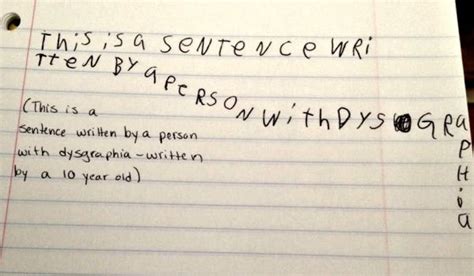 THiS iS a SENTENCE WRi
TTeN BY a PERSON WithDYSGRaPHia
(This is a
sentence written by a person
with dysgraphia - written
by a 10 year old)